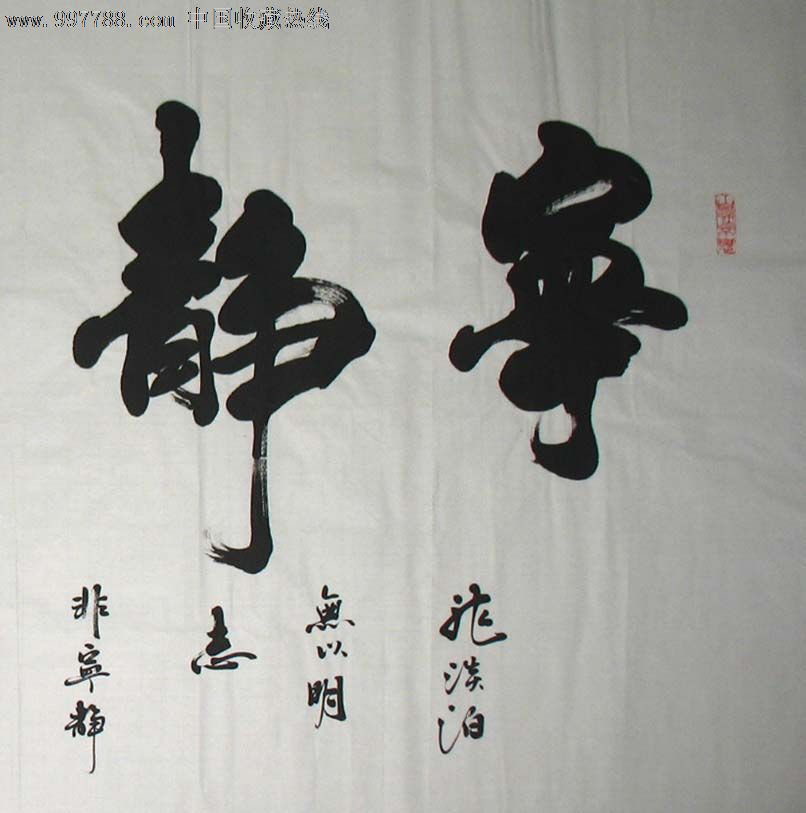 www.997788.com 中国收藏热线
寧靜
非淡泊
無以明
志
非寧靜